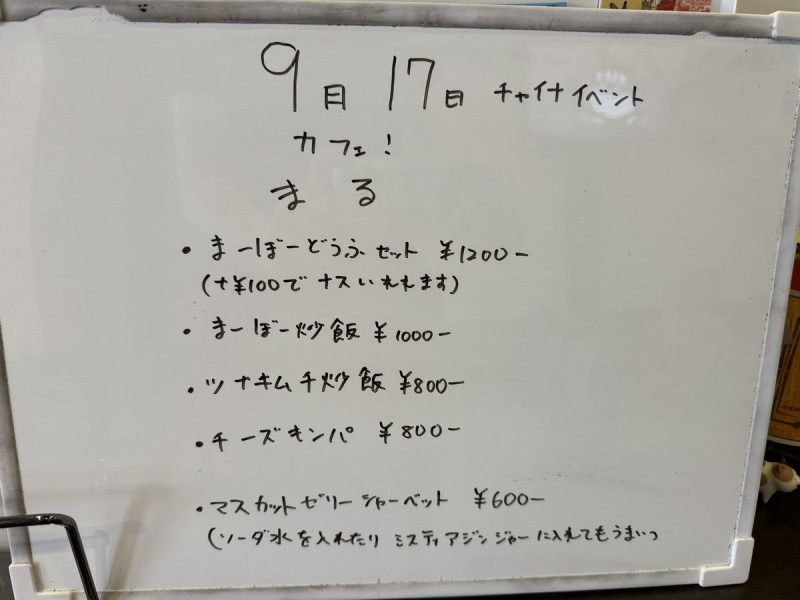 9月17日 チャイナイベント
カフェ!
まる
・まーぼーどうふセット ¥1200-
(+¥100でナスいれれます)
・まーぼー炒飯 ¥1000-
・ツナキムチ炒飯 ¥800-
・チーズキンパ ¥800-
・マスカットゼリーシャーベット ¥600-
(ソーダ水を入れたり ミスティアジンジャーに入れてもうまいっ